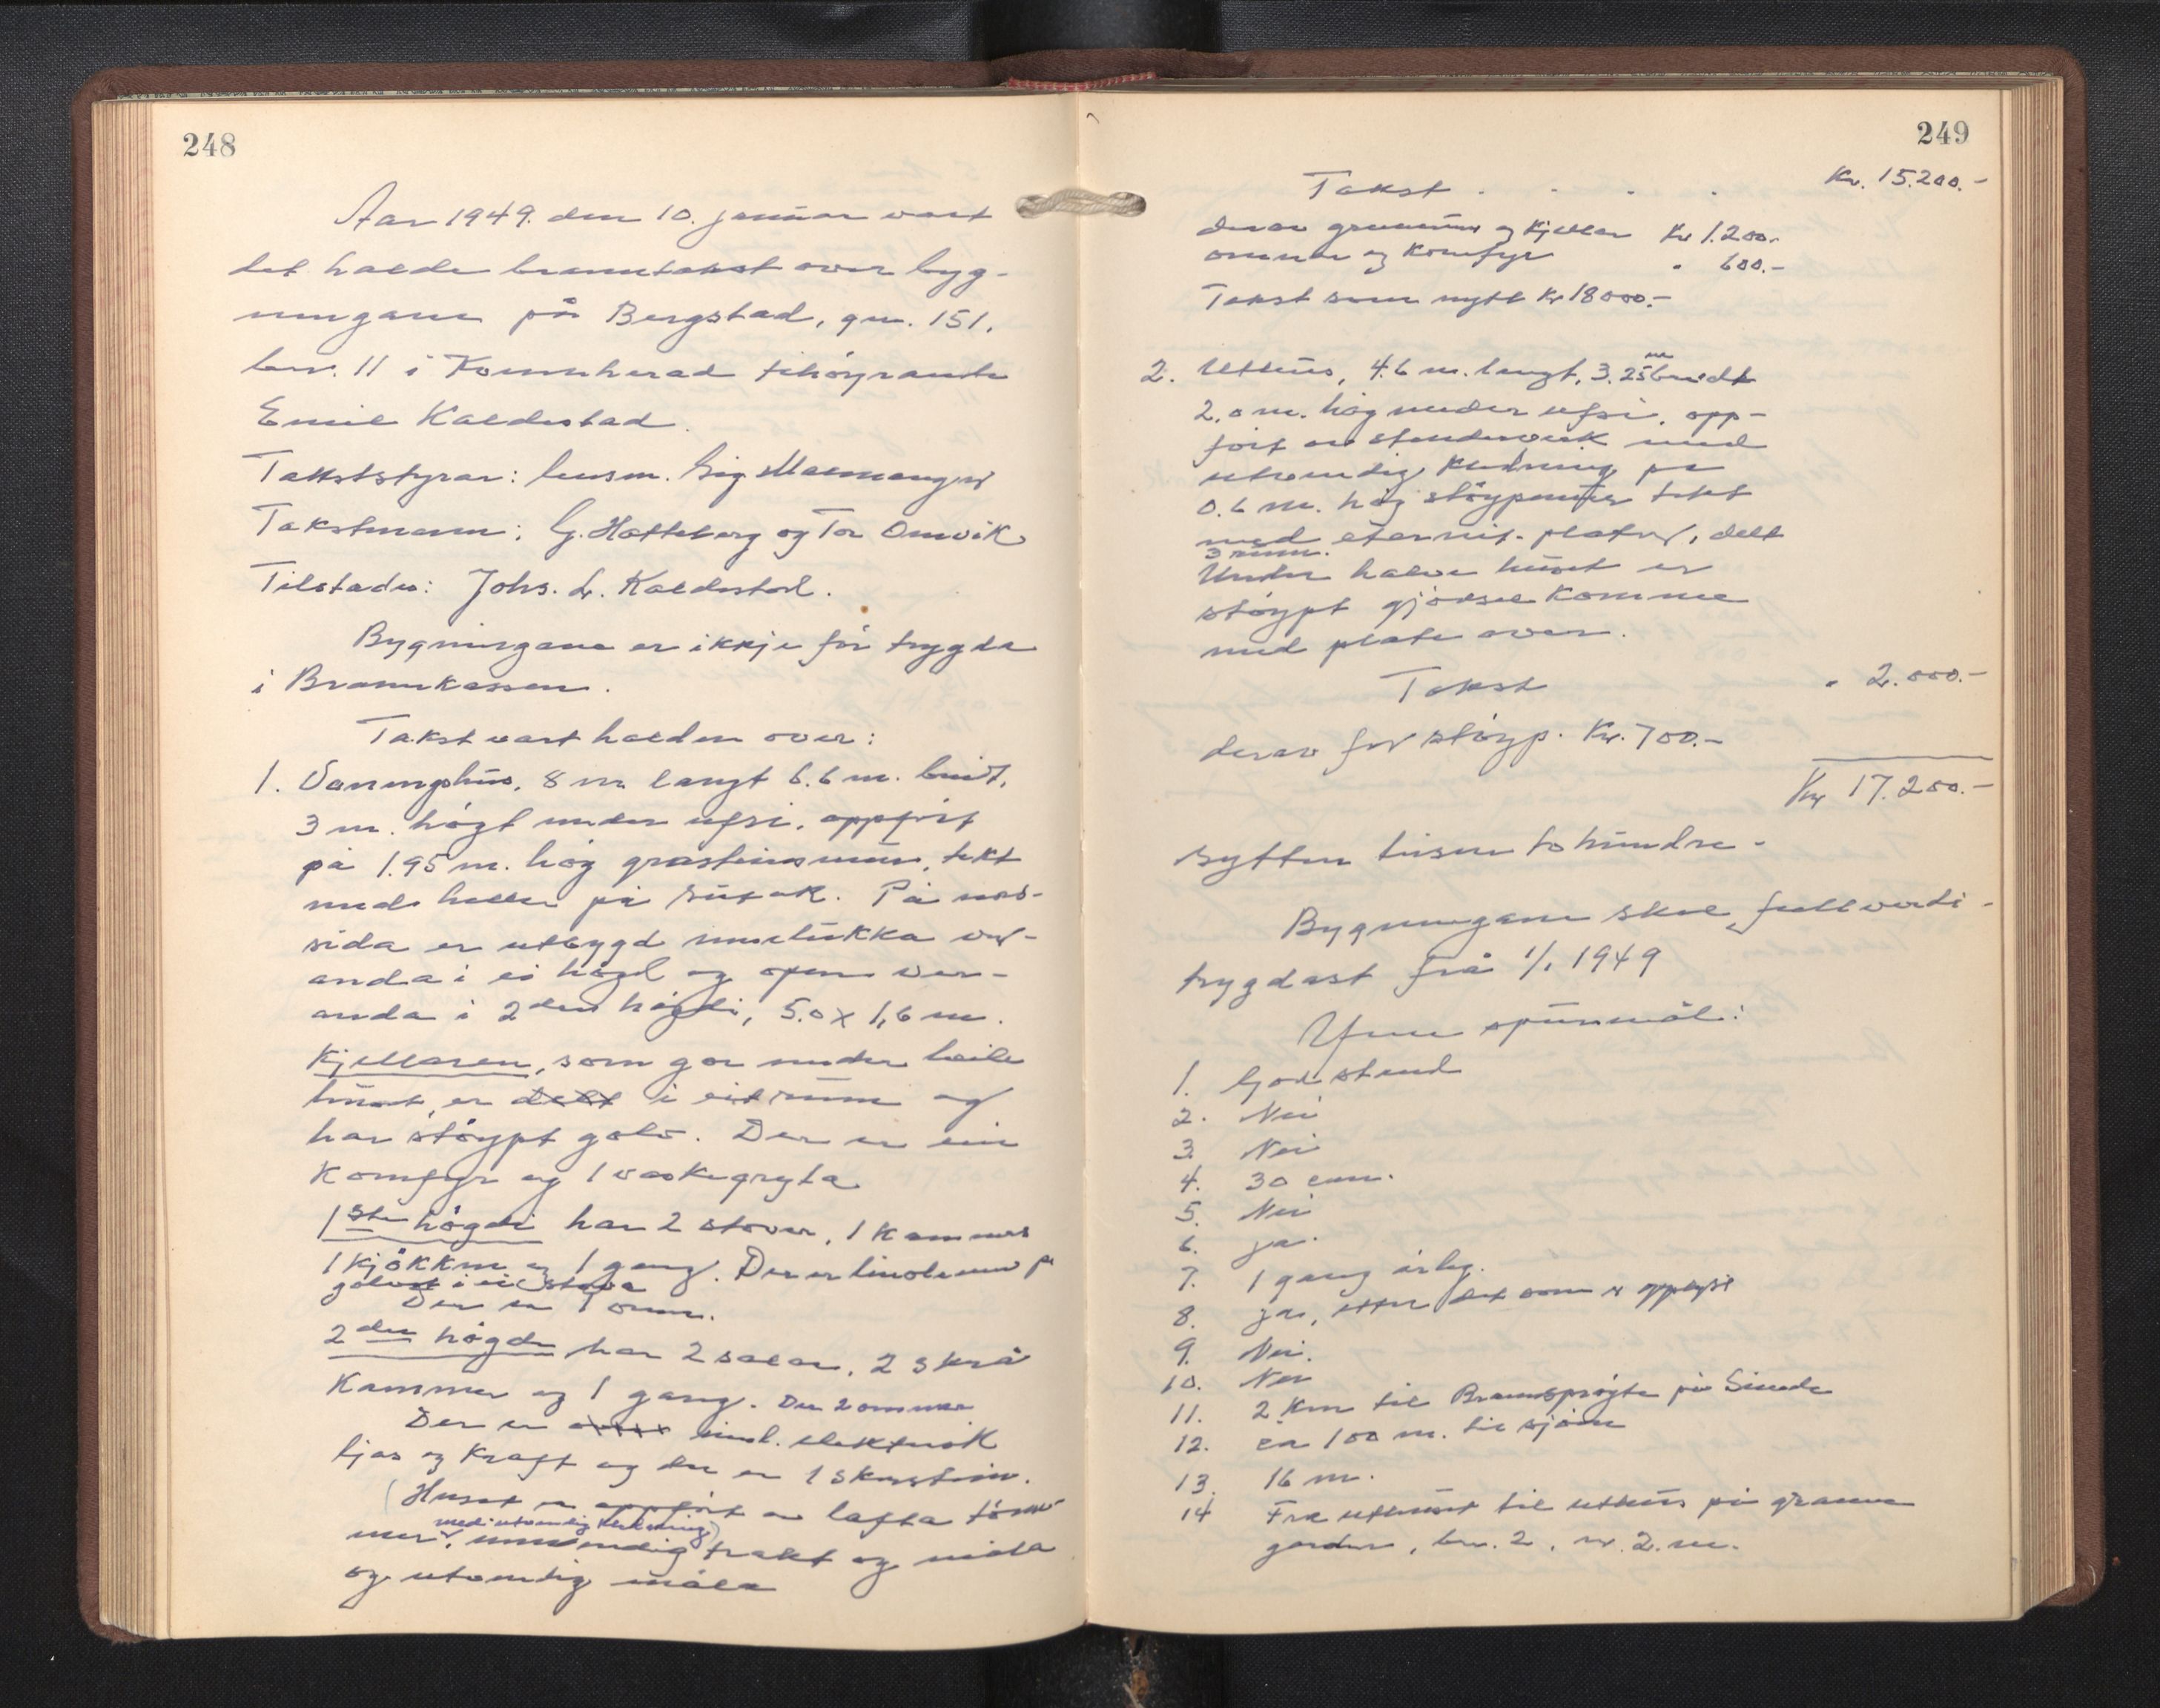 248
Aar 1949. den 10. januar vart
det halde branntakst over byg-
ningane på Bergstad, gnr. 151,
bnr. 11 i Kvinnherad tilhøyrande
Emil Kaldestad.
Takststyrar: lensm. Sig. Malmanger
Takstmenn: G. Hatteberg og Tor Omvik
Tilstades: Johs. L. Kaldestad.
Bygningane er ikkje før trygda
i Brannkassen.
Takst vart halden over:
1. Vaningshus, 8 m langt 6.6 m. breidt,
3 m. högt under ufsi, oppfört
på 1.95 m. hög gråsteinsmur, tekt
med heller på sutak. På
sida er utbygd innelukka ver-
anda i ei högd og open ver-
anda i 2den högdi, 5.0 x 1,6 m.
Kjellaren, som gor under heile
huset, er delt i eit rum og
har stöypt golv. Der er ein
Komfyr og 1 vaskegryta
1ste högdi har 2 stover, 1 kammers
1 kjökken og 1 gang. Der er linoleum på
golvet i ei stova
Der er 1 omn.
2den högde har 2 salar, 2 skrå
Kammer og 1 gang. Der 2 omner
Der er innl. elektrisk
ljos og kraft og der er 1 skorstein.
(Huset er oppfört av lafta töm-
med utvendig kledning)
mer, innvendig trekt og mala
og utvendig måla
249
Takst . . . . Kr. 15.200.-
derav grunnmur og kjellar Kr 1.200.-
omner og Komfyr " 600.-
Takst som nytt Kr 18000.-
2. Uthus, 4.6 m. langt, 3.25 m breidt
2.0 m. hög under ufsi, opp-
fört av stenderverk med
utvendig kledning på
0.6 m. hög stöypemur tekt
med eternit-plater, delt
3 rum.
Under halve huset er
stöypt gjödselkomme
med plate over.
Takst " 2.000.-
derav for stöyp. Kr. 700.-
Kr 17.200.-
Sytten tusen to hundre -
Bygningane skal fullverdi-
trygdast frå 1/1 1949
Ymse spursmål:
1. God stand
2. Nei
3. Nei
4. 30 cm.
5. Nei
6. ja.
7. 1 gang årleg.
8. ja, etter det som er opplyst
9. Nei.
10. Nei
11. 2 km til Brannspröyte på Sunde
12. ca 100 m. til sjöen
13. 16 m.
14 Fra uthuset til uthus på granne
garden, bnr. 2, er 2. m.